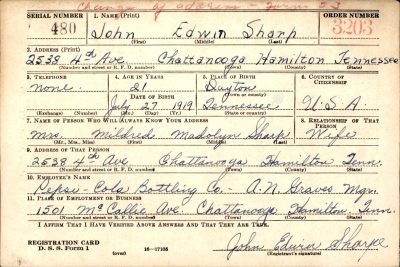 Change of address Form 53
SERIAL NUMBER 1. NAME (Print) ORDER NUMBER
480 John Edwin Sharp 3203
(First) (Middle) (Last)
2. ADDRESS (Print)
2538 4th Ave. Chattanooga Hamilton Tennessee
(Number and street or R. F. D. number) (Town) (County) (State)
3. TELEPHONE 4. AGE IN YEARS 5. PLACE OF BIRTH 6. COUNTRY OF CITIZENSHIP
none. 21 Dayton
DATE OF BIRTH (Town or county)
July 27 1919 Tennessee U.S.A.
(Exchange) (Number) (Mo.) (Day) (Yr.) (State or country)
7. NAME OF PERSON WHO WILL ALWAYS KNOW YOUR ADDRESS 8. RELATIONSHIP OF THAT PERSON
Mrs. Mildred Madolyn Sharp Wife
(Mr., Mrs., Miss) (First) (Middle) (Last)
9. ADDRESS OF THAT PERSON
2538 4th Ave Chattanooga Hamilton Tenn.
(Number and street or R. F. D. number) (Town) (County) (State)
10. EMPLOYER'S NAME
Pepsi-Cola Bottling Co. - A.N. Graves Mgr.
11. PLACE OF EMPLOYMENT OR BUSINESS
1501 McCallie Ave. Chattanooga Hamilton, Tenn.
(Number and street or R. F. D. number) (Town) (County) (State)
I AFFIRM THAT I HAVE VERIFIED ABOVE ANSWERS AND THAT THEY ARE TRUE.
REGISTRATION CARD
D. S. S. Form 1 16—17105 John Edwin Sharpe
(over) (Registrant's signature)